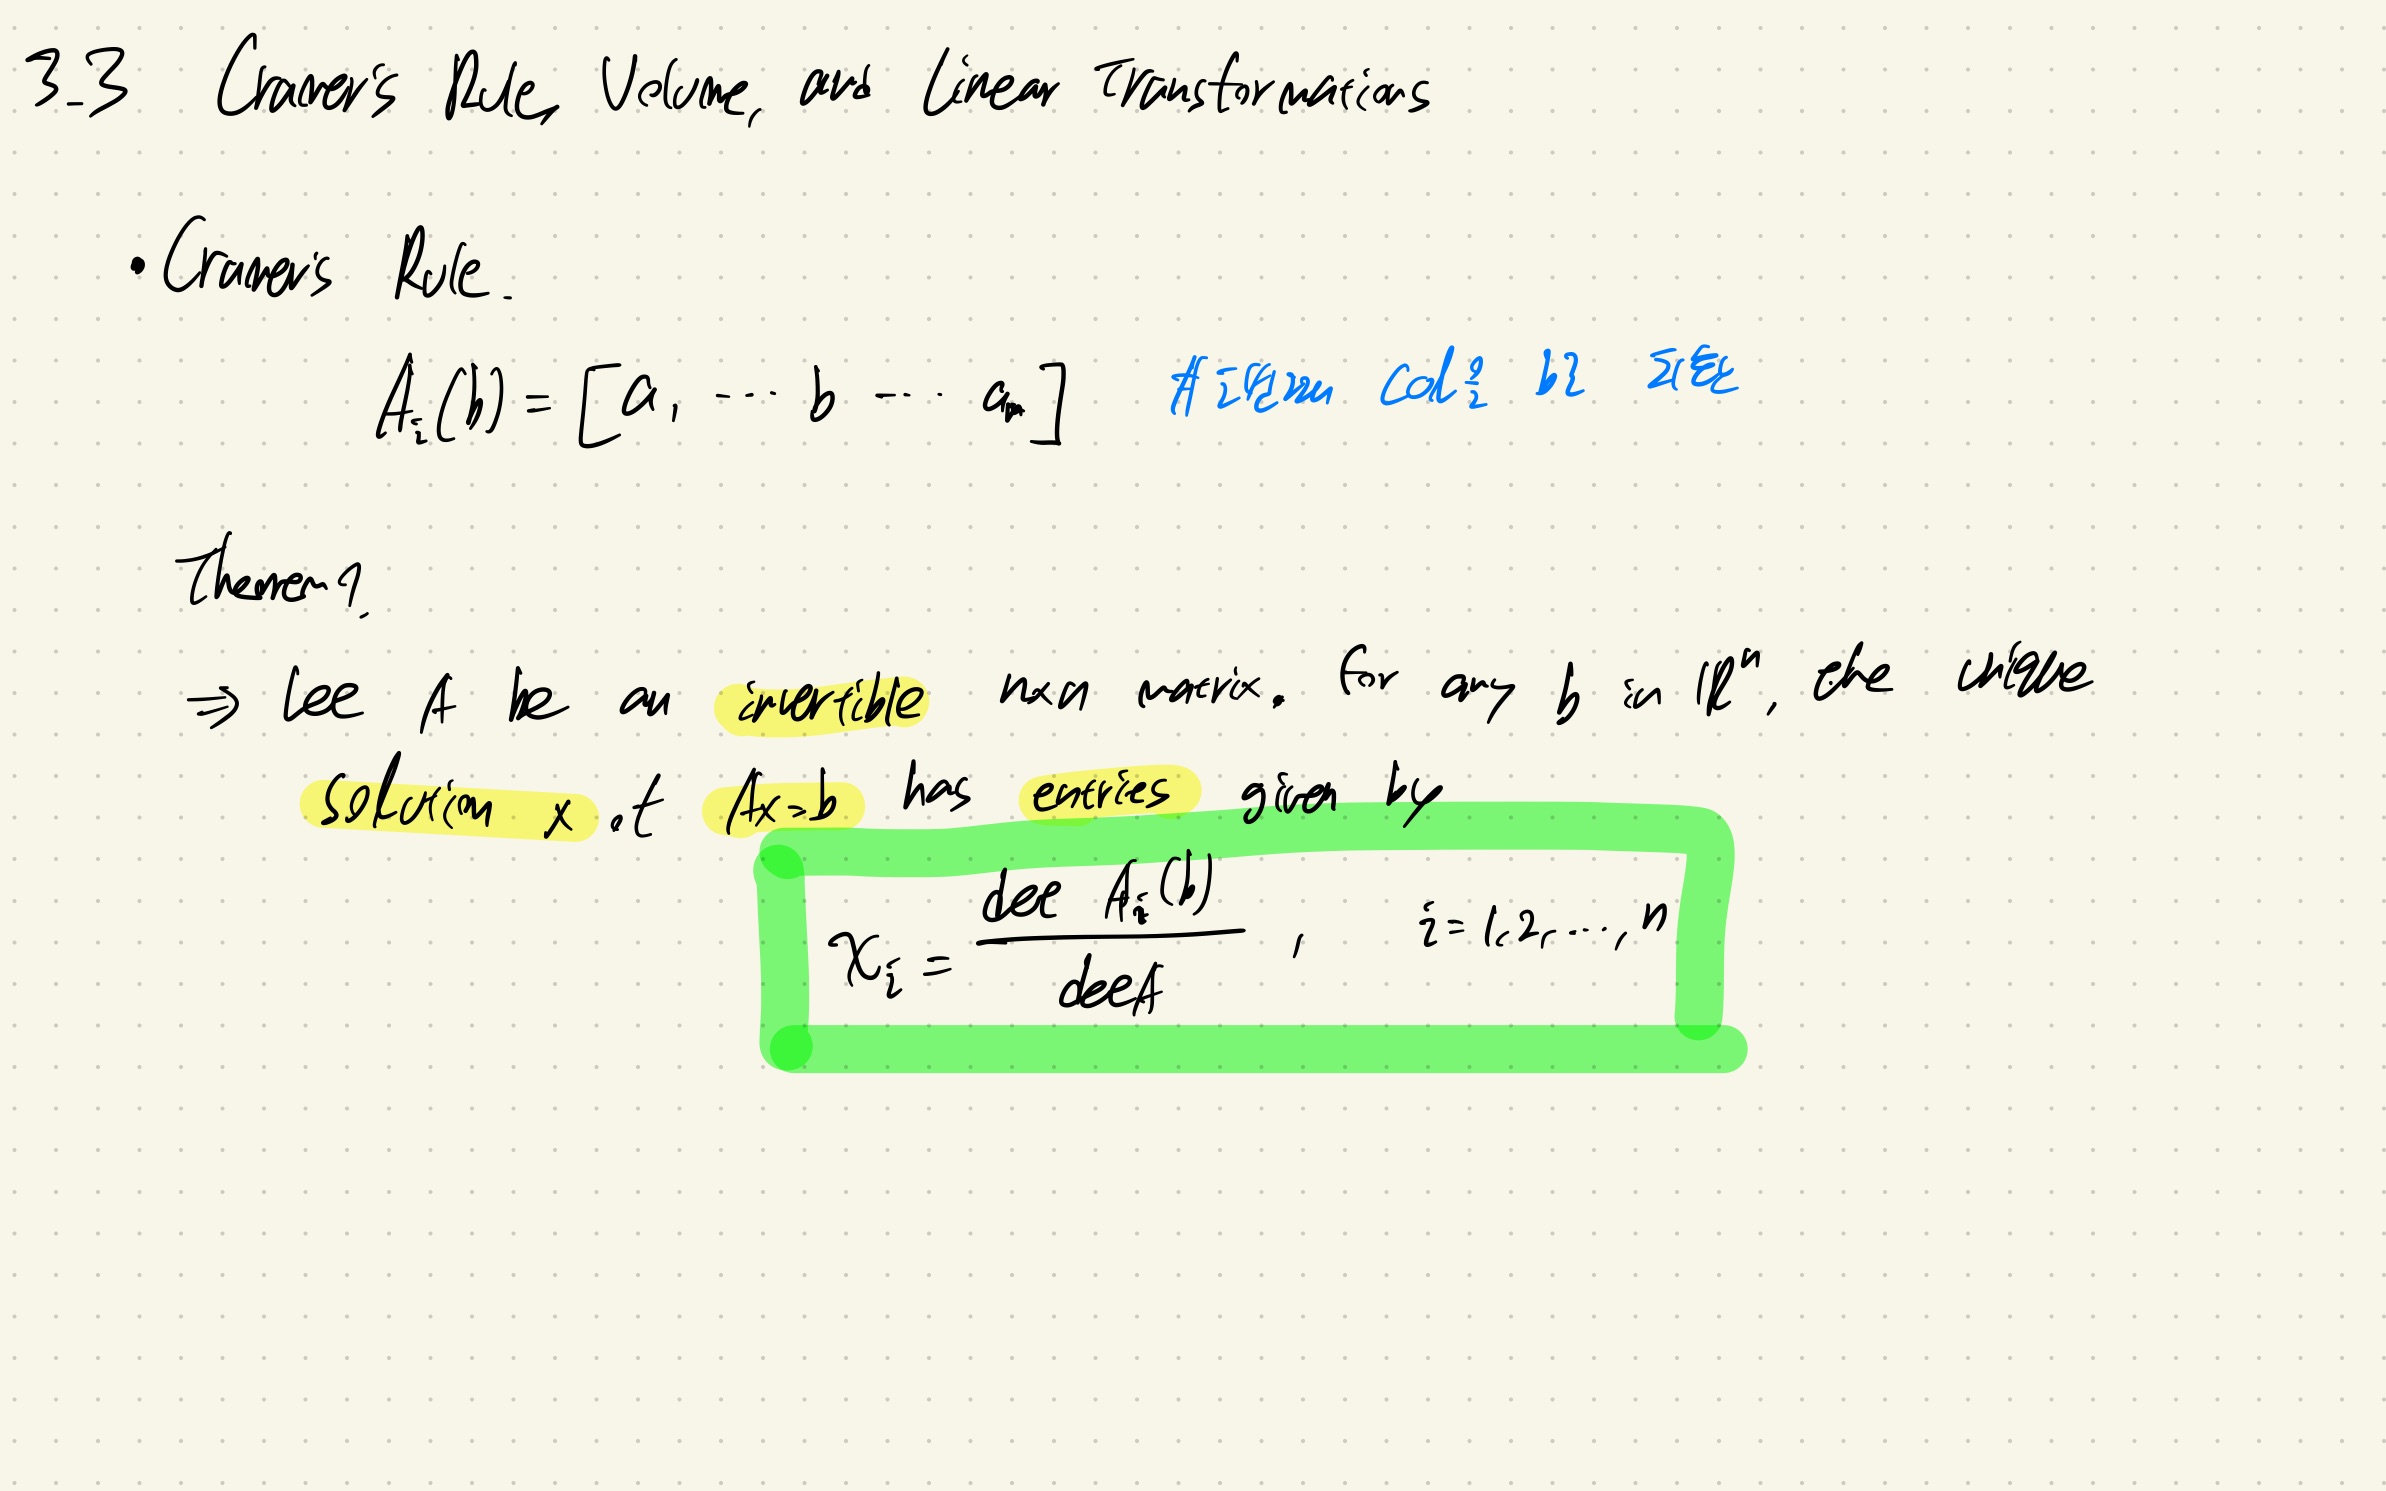 3.3 Cramer's Rule, Volume, and Linear Transformations
• Cramer's Rule.
A_i(b) = [a_1 ... b ... a_n] # i번째 col을 b로
Theorem 7.
⇒ Let A be an invertible n×n matrix. For any b in ℝ^n, the unique
solution x of Ax=b has entries given by
x_i = det A_i(b) / det A , i = 1, 2, ..., n